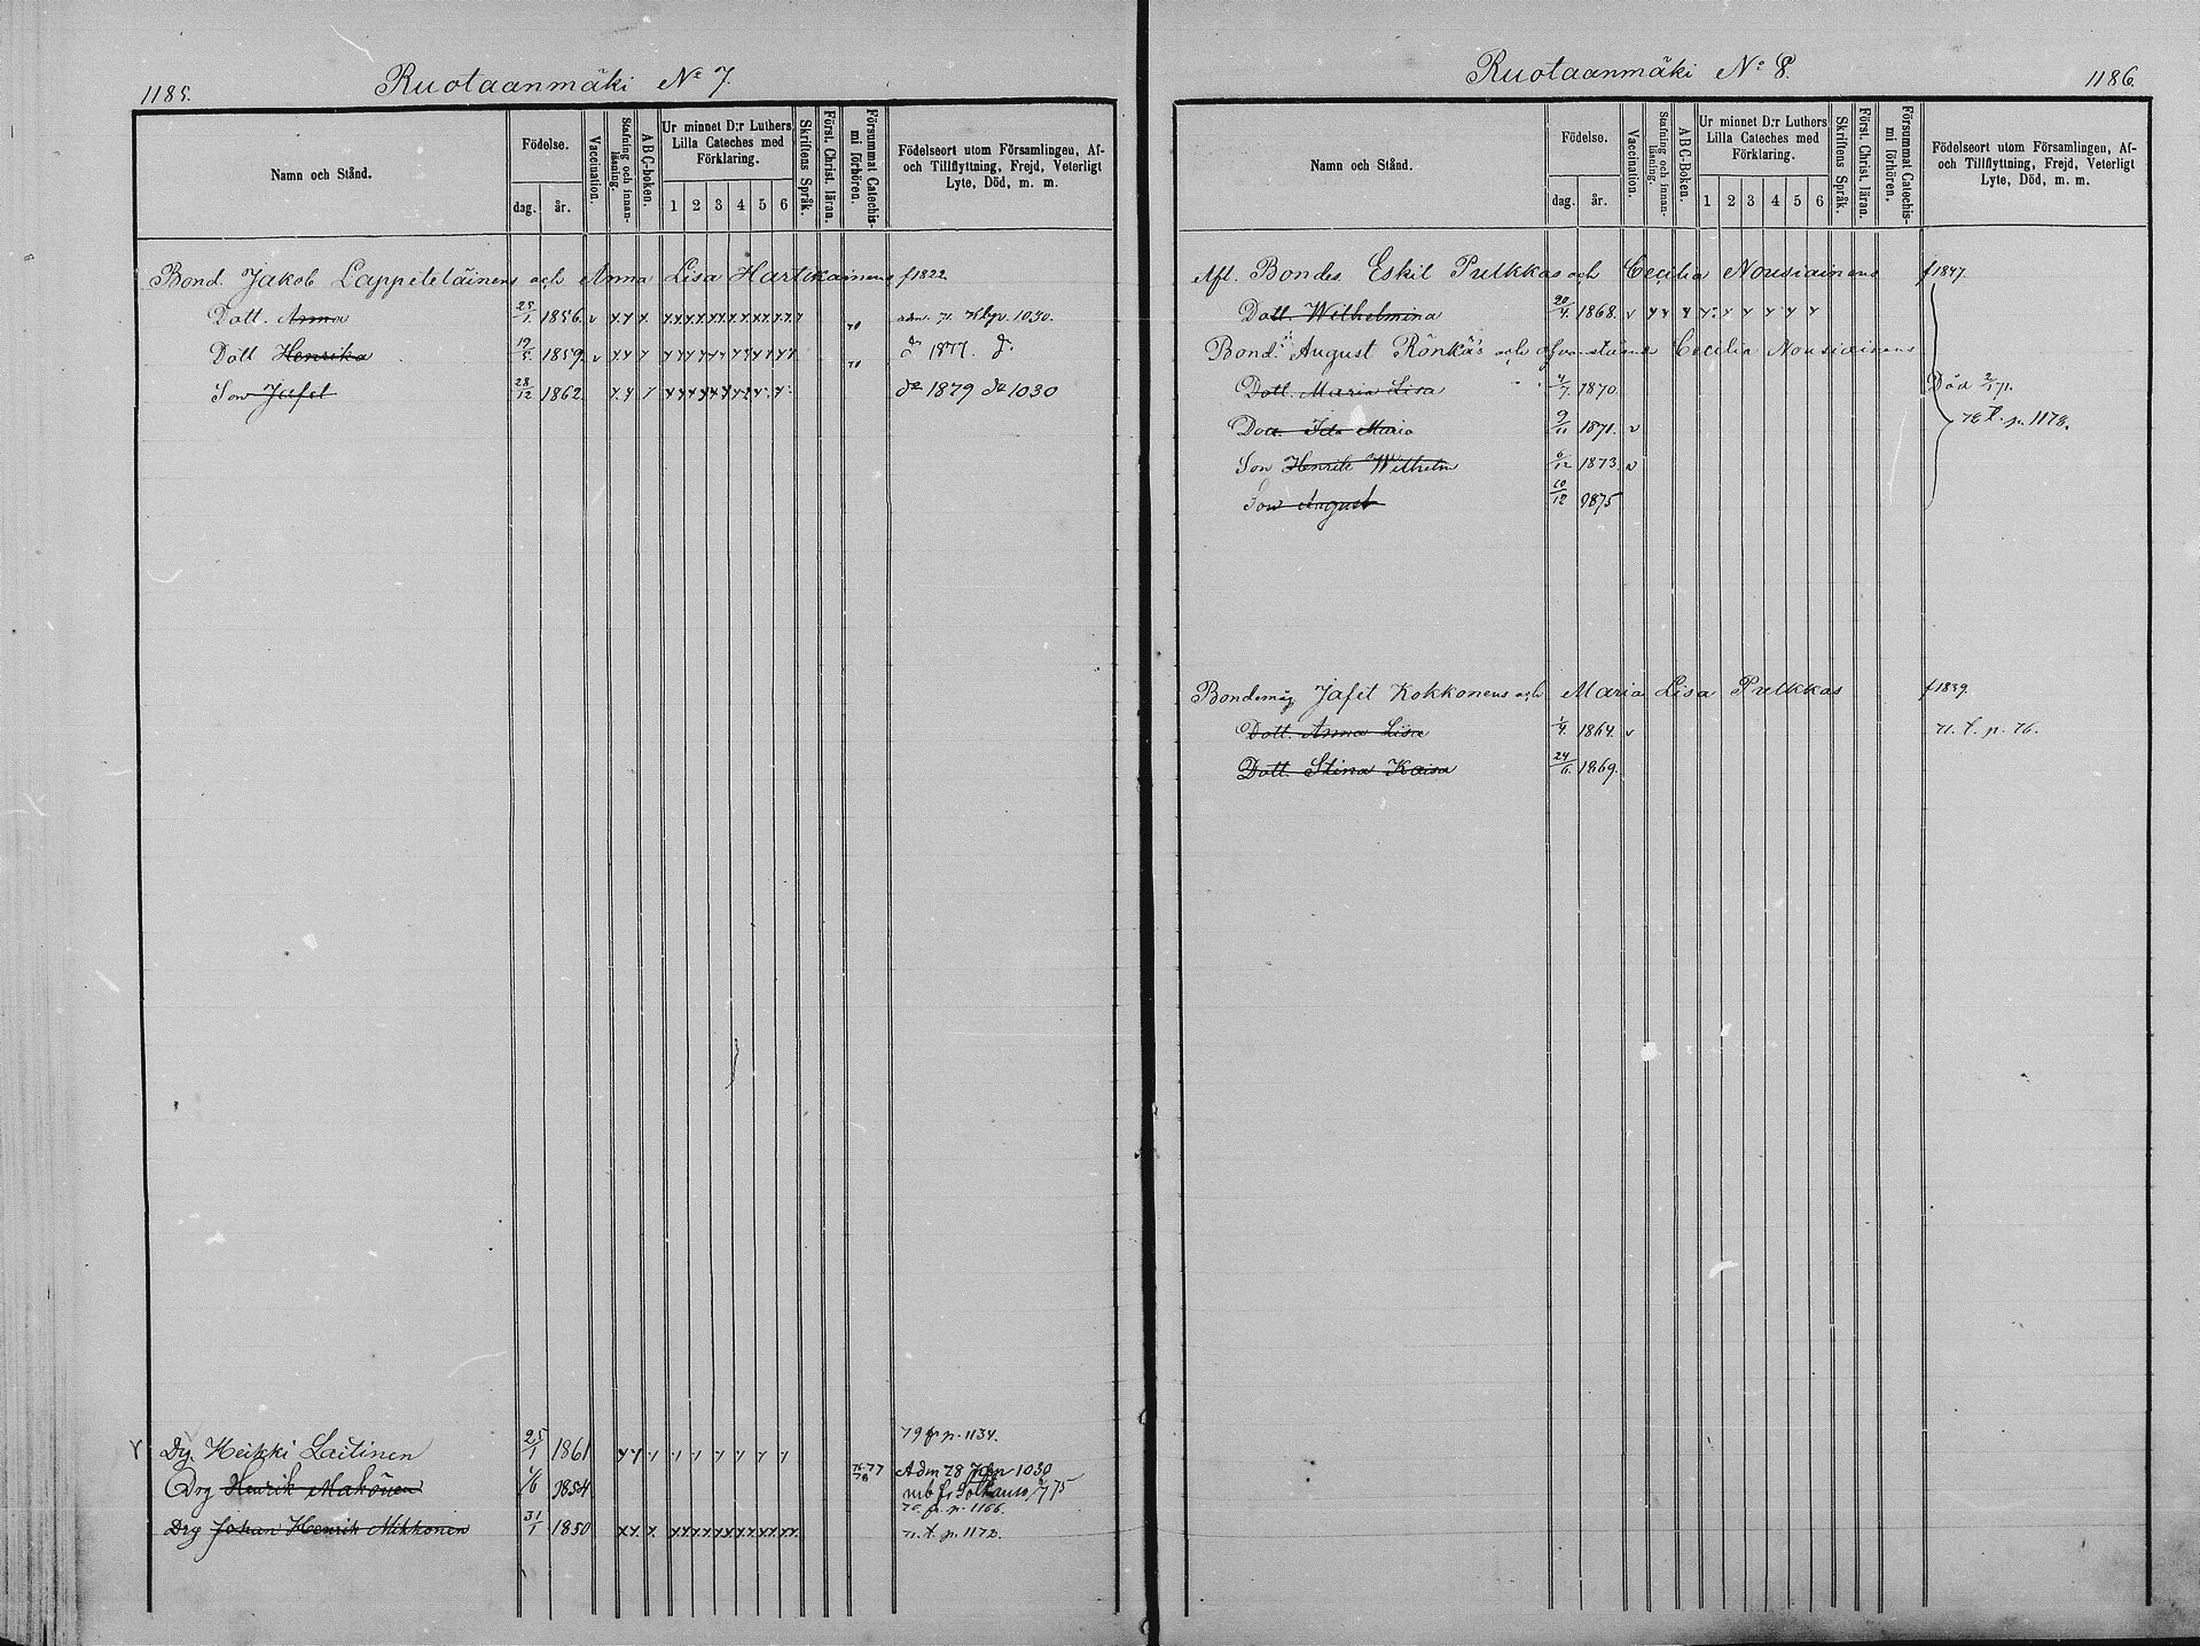 1185.
Ruotaanmäki No 7.
Namn och Stånd.
Födelse.
dag.
år.
Vaccination.
Stafning och innanläsning.
ABC-boken.
Ur minnet D:r Luthers Lilla Cateches med Förklaring.
1 2 3 4 5 6
Skriftens Språk.
Först. Christ. läran.
Försummat Catechismi förhören.
Födelseort utom Församlingen, Af- och Tillflyttning, Frejd, Veterligt Lyte, Död, m. m.
Bond. Jakob Lappeteläinens och Anna Lisa Hartikainens f 1822.
Dott. Anna 25/1. 1856. v 70 adm. 71. 1030.
Dott Henrika 19/5. 1859. v 70 1877.
Son Jafet 28/12 1862. do 1879 do 1030
Dg. Heikki Laitinen 25/1 1861 79 fr p. 1134.
Drg Henrik Makönen 1/6 1854 Adm 78 1030
75
70 fr. p. 1166.
Drg Johan Henrik Mikkonen 31/1 1850 71. t. p. 1172.
Ruotaanmäki No 8.
1186.
Namn och Stånd.
Födelse.
dag.
år.
Vaccination.
Stafning och innanläsning.
ABC-Boken.
Ur minnet D:r Luthers Lilla Cateches med Förklaring.
1 2 3 4 5 6
Skriftens Språk.
Först. Christ. läran.
Försummat Catechismi förhören.
Födelseort utom Församlingen, Af- och Tillflyttning, Frejd, Veterligt Lyte, Död, m. m.
Afl. Bondes. Eskil Pulkkas och Cecilia Nousiainens f 1847.
Dott. Wilhelmina 20/4. 1868. v
Bond. August Rönkä's och ofvanstående Cecilia Nousiainens
Dott. Maria Lisa 4/7. 1870. Död 2/1 71.
Dott. Ida Maria 9/11 1871. v 78 t. p. 1178.
Son Henrik Wilhelm 6/12 1873. v
Son August 10/12 1875
Bondemåg Jafet Kokkonens och Maria Lisa Pulkkas f 1839.
Dott. Anna Lisa 1/4. 1864. v 71. t. p. 76.
Dott. Stina Kaisa 24/6. 1869.